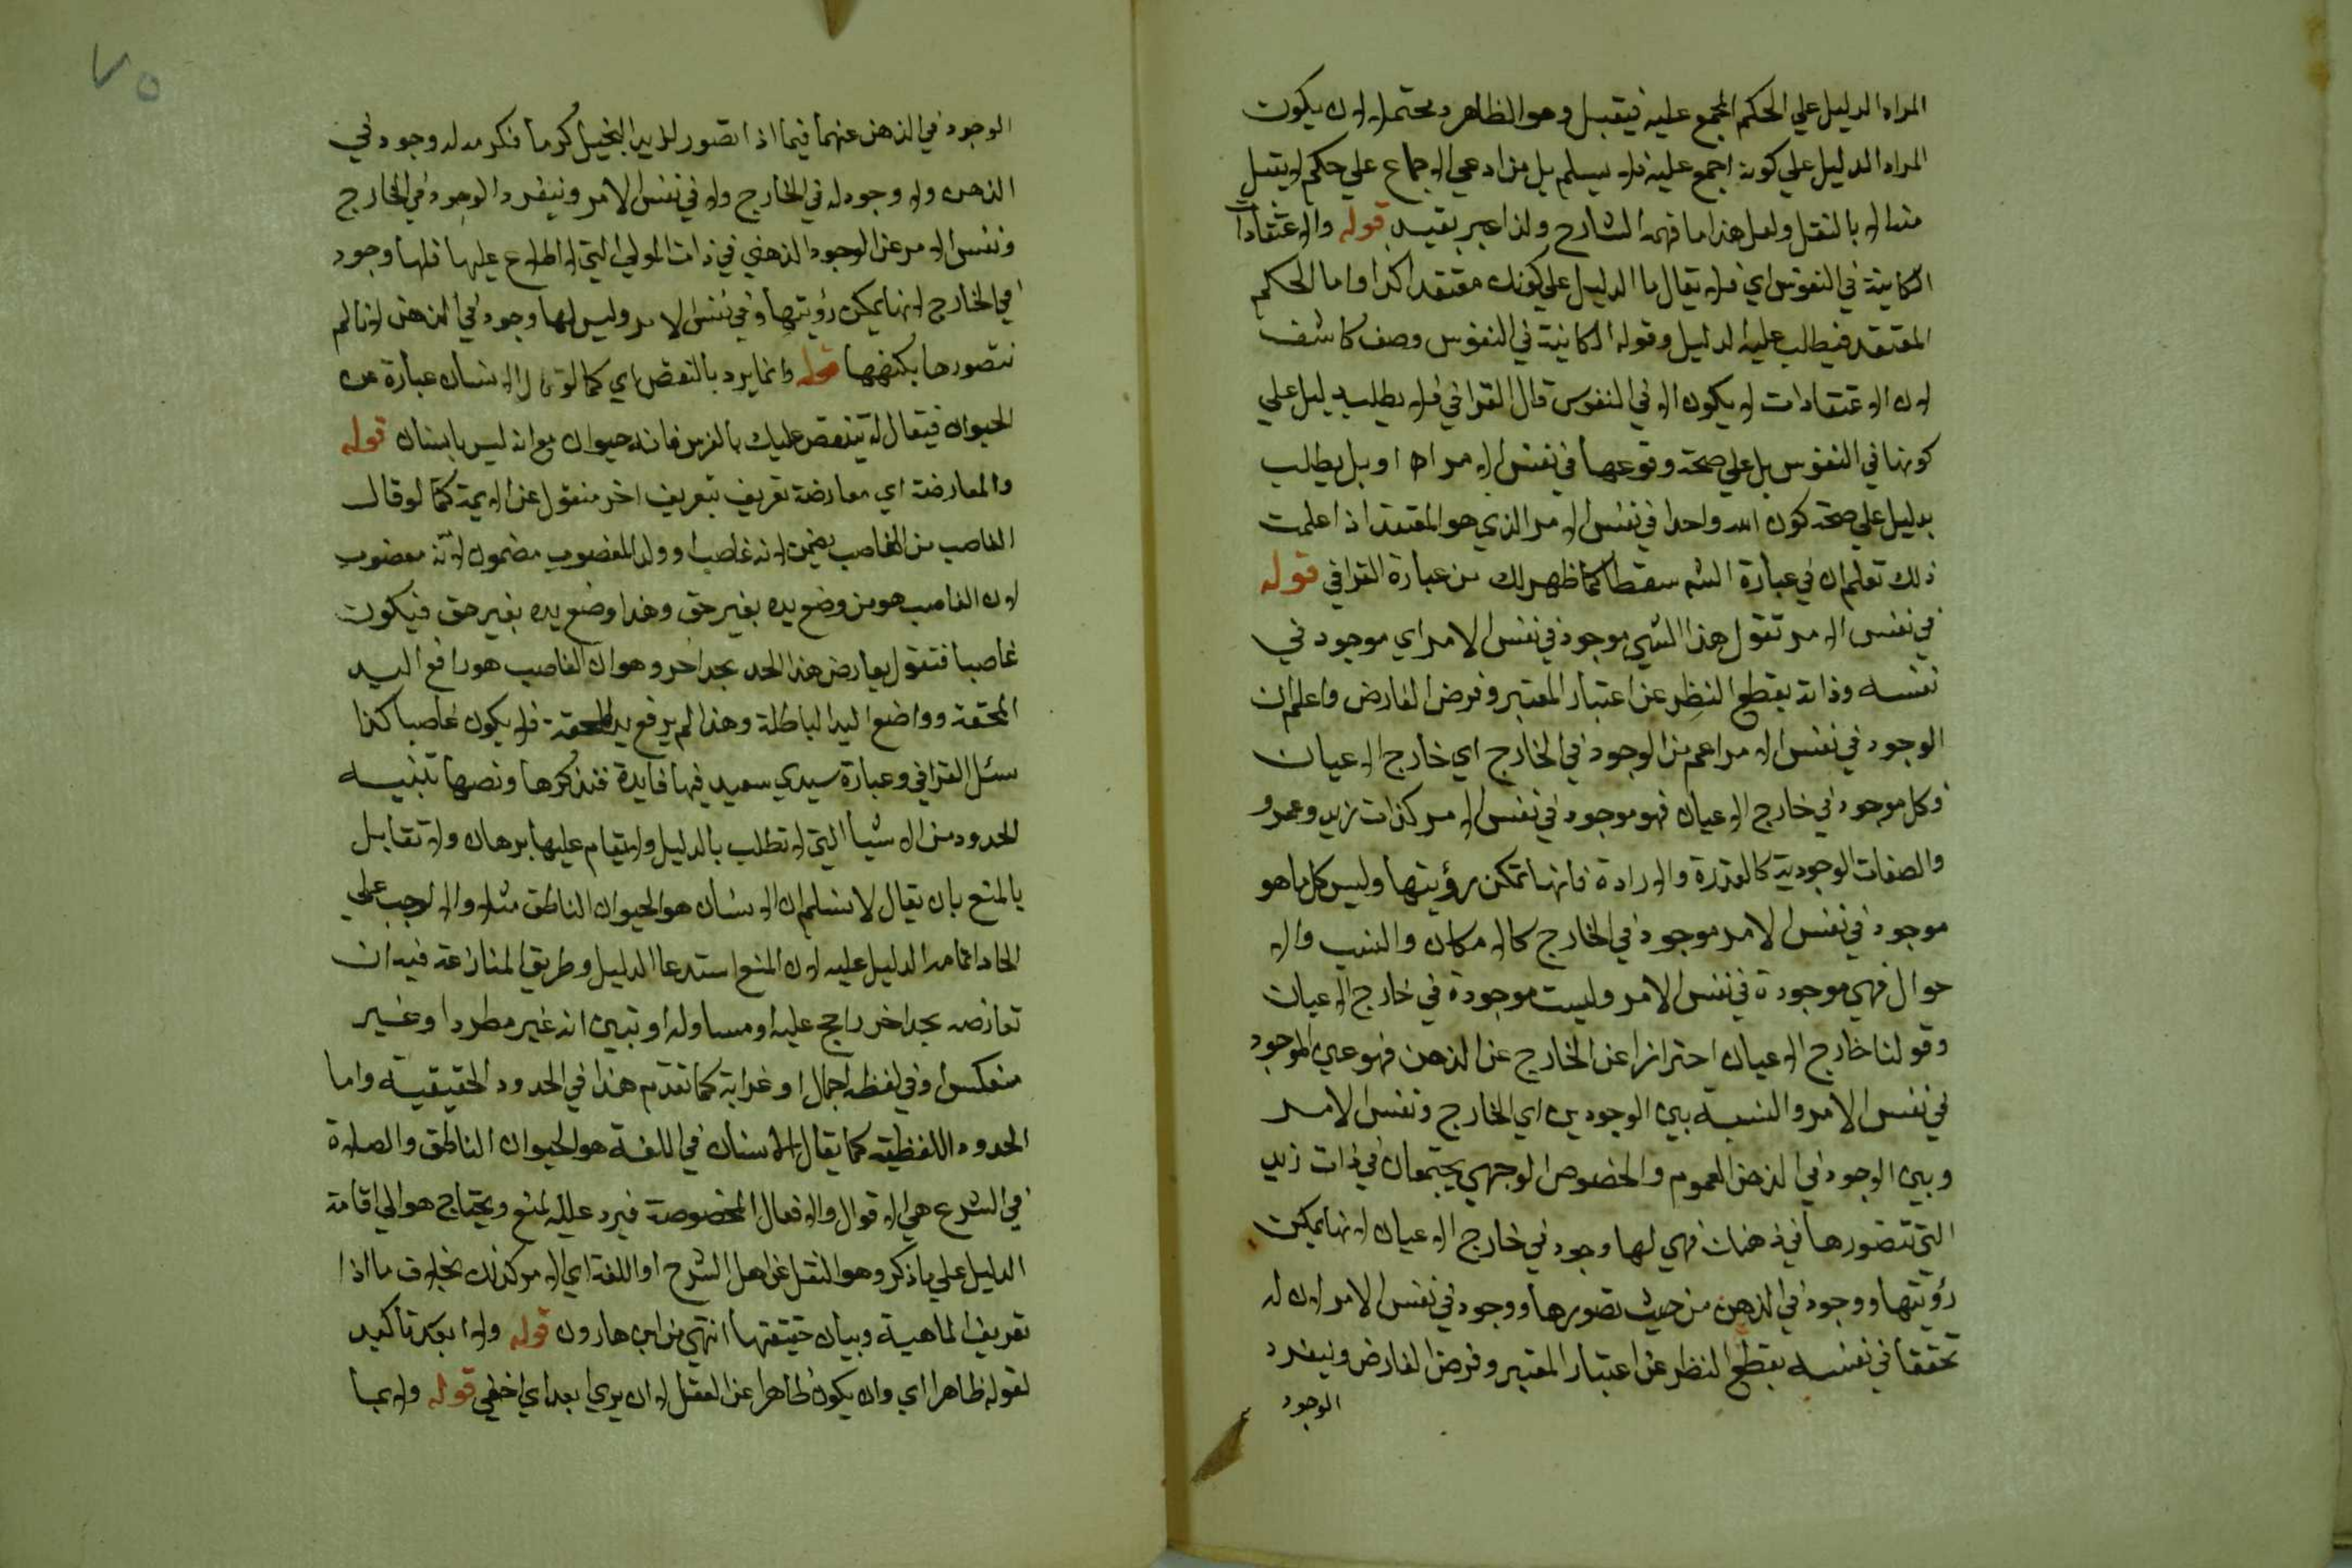 المراد الدليل علي الحكم المجمع عليه فيقبل وهو الظاهر ويحتمل ان يكون
المراد الدليل علي كونه اجمع عليه فلا يسلم بل من ادعي الاجماع علي حكم لا يقبل
منه الا بالنقل ولعل هذا ما فهمه الشارح ولذا عبر بقيد قوله والاعتقادات
الكاينة في النفوس اي فلا يقال ما الدليل علي كونك معتقد اكذا واما الحكم
المعتقد فيطلب عليه الدليل وقوله الكاينة في النفوس وصف كاشف
لان الاعتقادات لا يكون الا في النفوس قال القرافي فلا يطلب بدليل علي
كونها في النفوس بل علي صحة وقوعها في نفس الامر اه اوبل يطلب
بدليل علي صحة كون الله واحدا في نفس الامر الذي هو المعتقد اذا علمت
ذلك تعلم ان في عبارة الشه سقطا كما ظهر لك من عبارة القرافي قوله
في نفس الامر تقول هذا الشي موجود في نفس الامر اي موجود في
نفسه وذاته بقطع النظر عن اعتبار المعتبر وفرض الفارض واعلم ان
الوجود في نفس الامر اعم من الوجود في الخارج اي خارج الاعيان
وكل موجود في خارج الاعيان فهو موجود في نفس الامر كذات زيد وعمرو
والصفات الوجودية كالقدرة والارادة فانها تمكن رؤيتها وليس كل ما هو
موجود في نفس الامر موجود في الخارج كالامكان والنسب والا
حوال فهي موجودة في نفس الامر وليست موجودة في خارج الاعيان
وقولنا خارج الاعيان احترازا عن الخارج عن الذهن فهو عين الموجود
في نفس الامر والنسبة بين الوجودين اي الخارج ونفس الامر
وبين الوجود في الذهن العموم والخصوص الوجهي يجتمعان في ذات زيد
التي تتصورها في ذهنك فهي لها وجود في خارج الاعيان لانها يمكن
رؤيتها ووجود في الذهن من حيث تصورها ووجود في نفس الامر لان له
تحققا في نفسه بقطع النظر عن اعتبار المعتبر وفرض الفارض وينفرد
الوجود
٧٥
الوجود في الذهن عنهما فيما اذا تصور لزيد البخيل كرما فكرمه له وجود في
الذهن ولا وجود له في الخارج ولا في نفس الامر وينفرد الوجود في الخارج
ونفس الامر عن الوجود الذهني في ذات المولي التي لا اطلاع عليها فلها وجود
في الخارج لانها يمكن رؤيتها وفي نفس الامر وليس لها وجود في الذهن لاننا لم
نتصورها بكنهها قوله وانما يرد بالنقض اي كما لو قال الانسان عبارة عن
الحيوان فيقال له ينتقض عليك بالفرس فانه حيوان مع انه ليس بانسان قوله
والمعارضة اي معارضة تعريف بتعريف اخر منقول عن الايمة كما لو قال
الغاصب من الغاصب يضمن لانه غاصب وولد المغصوب مضمون لانه مغصوب
لان الغاصب هو من وضع يده بغير حق وهذا وضع يده بغير حق فيكون
غاصبا فتقول يعارض هذا الحد بحد اخر وهو ان الغاصب هو رافع اليد
المحقة وواضع اليد الباطلة وهذا لم يرفع يد المحقة فلا يكون غاصبا كذا
سئل القرافي وعبارة سيدي سعيد فيها فايدة فنذكرها ونصها تنبيه
الحدود من الاشيا التي لا تطلب بالدليل ولا يقام عليها برهان ولا تقابل
بالمنع بان يقال لا نسلم ان الانسان هو الحيوان الناطق مثلا والا لوجب علي
الحاد اقامة الدليل عليه لان المنع استدعا الدليل وطريق المنازعة فيه ان
تعارضه بحد اخر راجح عليه او مساو له او تبين انه غير مطرد او غير
منعكس او في لفظه اجمال او غرابة كما تقدم هذا في الحدود الحقيقية واما
الحدود اللفظية كما يقال الانسان في اللغة هو الحيوان الناطق والصلاة
في الشرع هي الاقوال والافعال المخصوصة فيرد عليه المنع ويحتاج هو الي اقامة
الدليل علي ما ذكر وهو النقل عن اهل الشرح او اللغة اي الامر كذلك بخلاف ما اذا
تعريف الماهية وبيان حقيقتها انتهي من ابن هارون قوله ولا ابعد تاكيد
لقوله ظاهرا اي وان يكون ظاهرا عن العقل لا ان يري ابعد اي اخفي قوله ولا بما